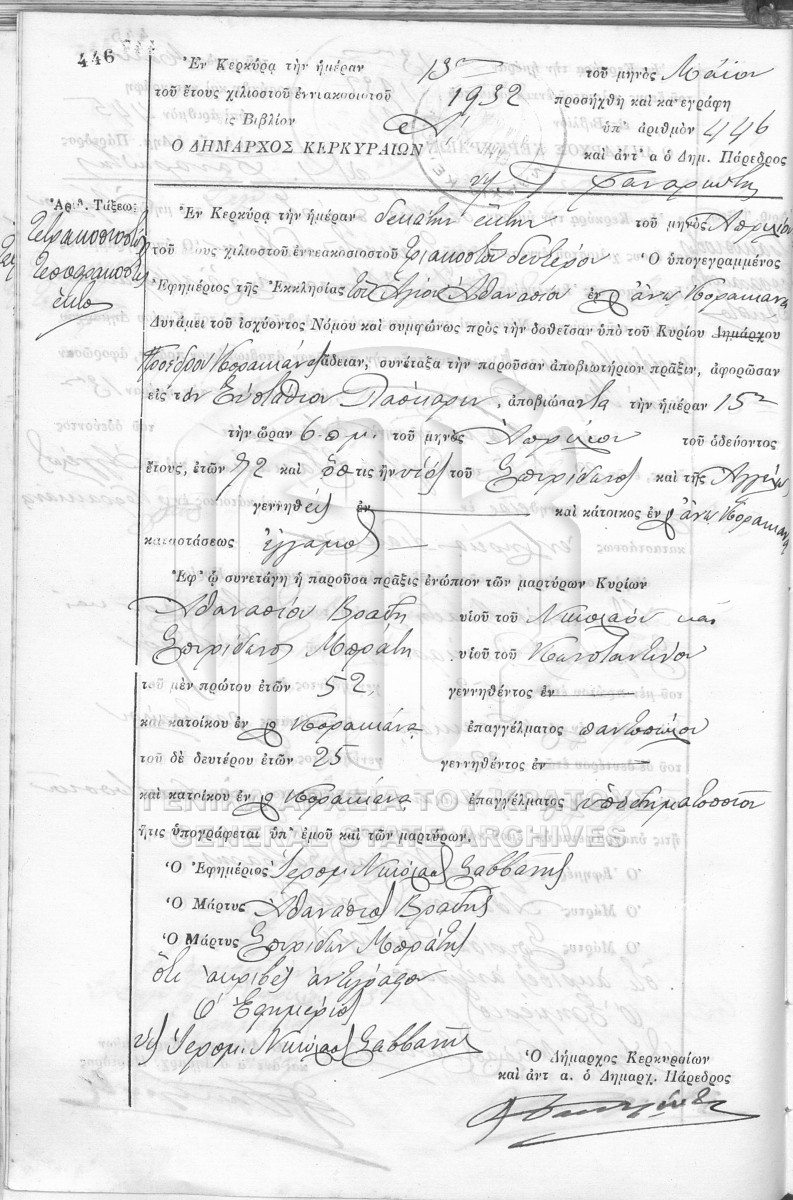 446
Ἐν Κερκύρᾳ τὴν ἡμέραν 13ην τοῦ μηνὸς Μάϊου
τοῦ ἔτους χιλιοστοῦ ἐννιακοσιοστοῦ 1932 προσήχθη καὶ κατεγράφη
εἰς Βιβλίον ὑπ' ἀριθμὸν 446
Ο ΔΗΜΑΡΧΟΣ ΚΕΡΚΥΡΑΙΩΝ καὶ ἀντ' α ὁ Δημ. Πάρεδρος
Ἀριθ. Τάξεως
Τετρακοσιοστὸν
Τεσσαρακοστὸν
ἕκτον
Ἐν Κερκύρᾳ τὴν ἡμέραν δεκάτην ἕκτην τοῦ μηνὸς Ἀπριλίου
τοῦ ἔτους χιλιοστοῦ ἐννεακοσιοστοῦ τριακοστοῦ δευτέρου Ὁ ὑπογεγραμμένος
Ἐφημέριος τῆς Ἐκκλησίας τοῦ Ἁγίου Ἀθανασίου ἐν Ἄνω Κορακιάνα
Δυνάμει τοῦ ἰσχύοντος Νόμου καὶ συμφώνως πρὸς τὴν δοθεῖσαν ὑπὸ τοῦ Κυρίου Δημάρχου
Προέδρου Κορακιάνας ἄδειαν, συνέταξα τὴν παροῦσαν ἀποβιωτήριον πρᾶξιν, ἀφορῶσαν
εἰς τὸν Εὐστάθιον Πάσκαριν, ἀποβιώσαντα τὴν ἡμέραν 15ην
τὴν ὥραν 6 π.μ. τοῦ μηνὸς Ἀπριλίου τοῦ ὁδεύοντος
ἔτους, ἐτῶν 72 καὶ ὅστις ἦν υἱὸς τοῦ Σπυρίδωνος καὶ τῆς Ἀγγέλως
γεννηθεὶς ἐν καὶ κάτοικος ἐν Ἄνω Κορακιάνα
καταστάσεως ἔγγαμος
Ἐφ' ᾧ συνετάγη ἡ παροῦσα πρᾶξις ἐνώπιον τῶν μαρτύρων Κυρίων
Ἀθανασίου Βραδῆ υἱοῦ τοῦ Νικολάου καὶ
Σπυρίδωνος Μπράτη υἱοῦ τοῦ Κωνσταντίνου
τοῦ μὲν πρώτου ἐτῶν 52 γεννηθέντος ἐν
καὶ κατοίκου ἐν Κορακιάνα ἐπαγγέλματος παντοπώλου
τοῦ δὲ δευτέρου ἐτῶν 25 γεννηθέντος ἐν
καὶ κατοίκου ἐν Κορακιάνα ἐπαγγέλματος ὑποδηματοποιοῦ
ΓΕΝΙΚΑ ΑΡΧΕΙΑ ΤΟΥ ΚΡΑΤΟΥΣ
GENERAL STATE ARCHIVES
ἥτις ὑπογράφεται ὑπ' ἐμοῦ καὶ τῶν μαρτύρων.
Ὁ Ἐφημέριος Ἱερομ. Νικόλαος Σαββανῆς
Ὁ Μάρτυς Ἀθανάσιος Βραδῆς
Ὁ Μάρτυς Σπυρίδων Μπράτης
ὅτι ἀκριβὲς ἀντίγραφον
Ὁ Ἐφημέριος
Ἱερομ. Νικόλαος Σαββανῆς
Ὁ Δήμαρχος Κερκυραίων
καὶ ἀντ α. ὁ Δημαρχ. Πάρεδρος